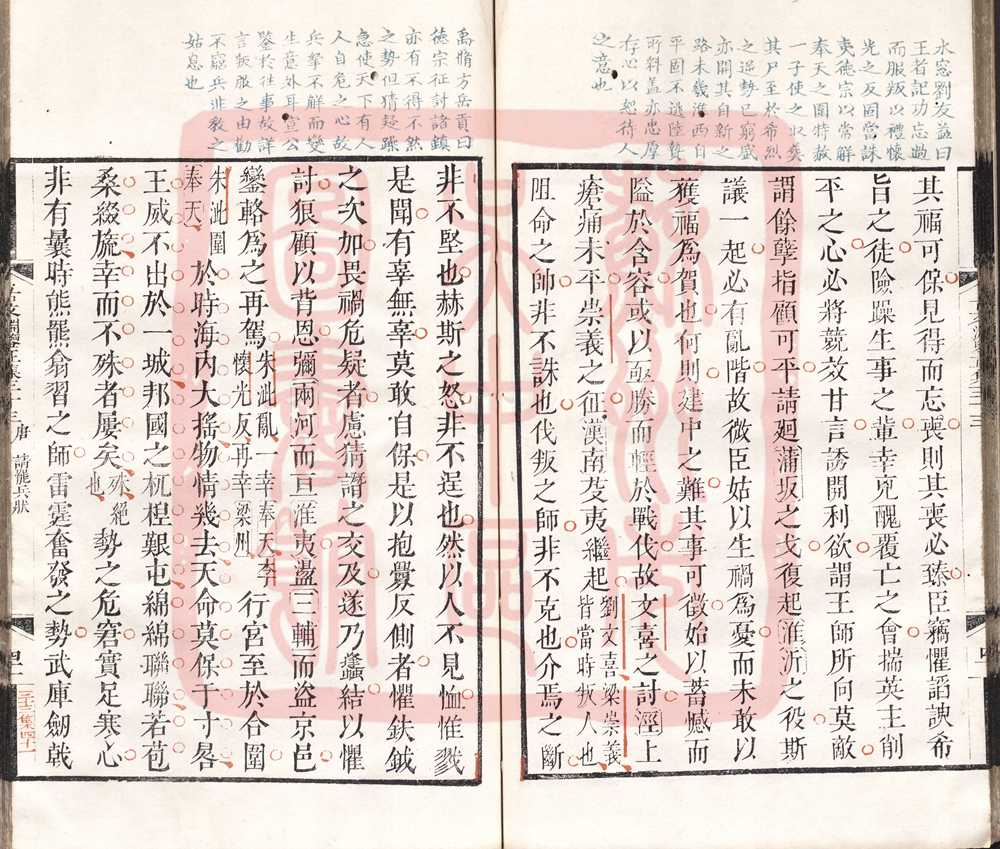 水窓劉友益曰
王者記功忘過
而服叛以禮懷
光之反固當誅
夷德宗以常解
奉天之圍特赦
一子使之收葬
其尸至於希烈
之逆勢已窮蹙
亦開其自新之
路未幾淮西自
平固不逃陸贄
所料蓋亦忠厚
存心以恕待人
之意也
其福可保見得而忘喪則其喪必臻臣竊懼謟諛希
旨之徒險躁生事之輩幸兇醜覆亡之會揣英主削
平之心必將競效甘言誘開利欲謂王師所向莫敵
謂餘孽指顧可平請廻蒲坂之戈復起淮沂之役斯
議一起必有亂階故微臣姑以生禍爲憂而未敢以
獲福爲賀也何則建中之難其事可徵始以蓄憾而
隘於含容或以亟勝而輕於戰伐故文喜之討涇上
瘡痛未平崇義之征漢南芟夷繼起劉文喜梁崇義皆當時叛人也
阻命之帥非不誅也伐叛之師非不克也介焉之斷
禹脩方岳貢曰
德宗征討諸鎮
亦有不得不然
之勢但猜疑躁
急使天下有人
人自危之心故
兵拏不解而變
生意外耳宣公
鑒於往事故詳
言叛服之由勸
不窮兵非敎之
姑息也
非不堅也赫斯之怒非不逞也然以人不見恤惟戮
是聞有辜無辜莫敢自保是以抱釁反側者懼鈇鉞
之次加畏禍危疑者慮猜譖之交及遂乃蠭結以懼
討狼顧以背恩彌兩河而亘淮夷盪三輔而盗京邑
鑾輅爲之再駕朱泚亂一幸奉天李懷光反再幸梁州行宮至於合圍
朱泚圍奉天於時海內大搖物情幾去天命莫保于寸晷
王威不出於一城邦國之杌桯艱屯綿綿聯聯若苞
桑綴旒幸而不殊者屢矣殊絕也勢之危窘實足寒心
非有曩時熊羆翕習之師雷霆奮發之勢武庫劒戟
唐
請罷兵狀